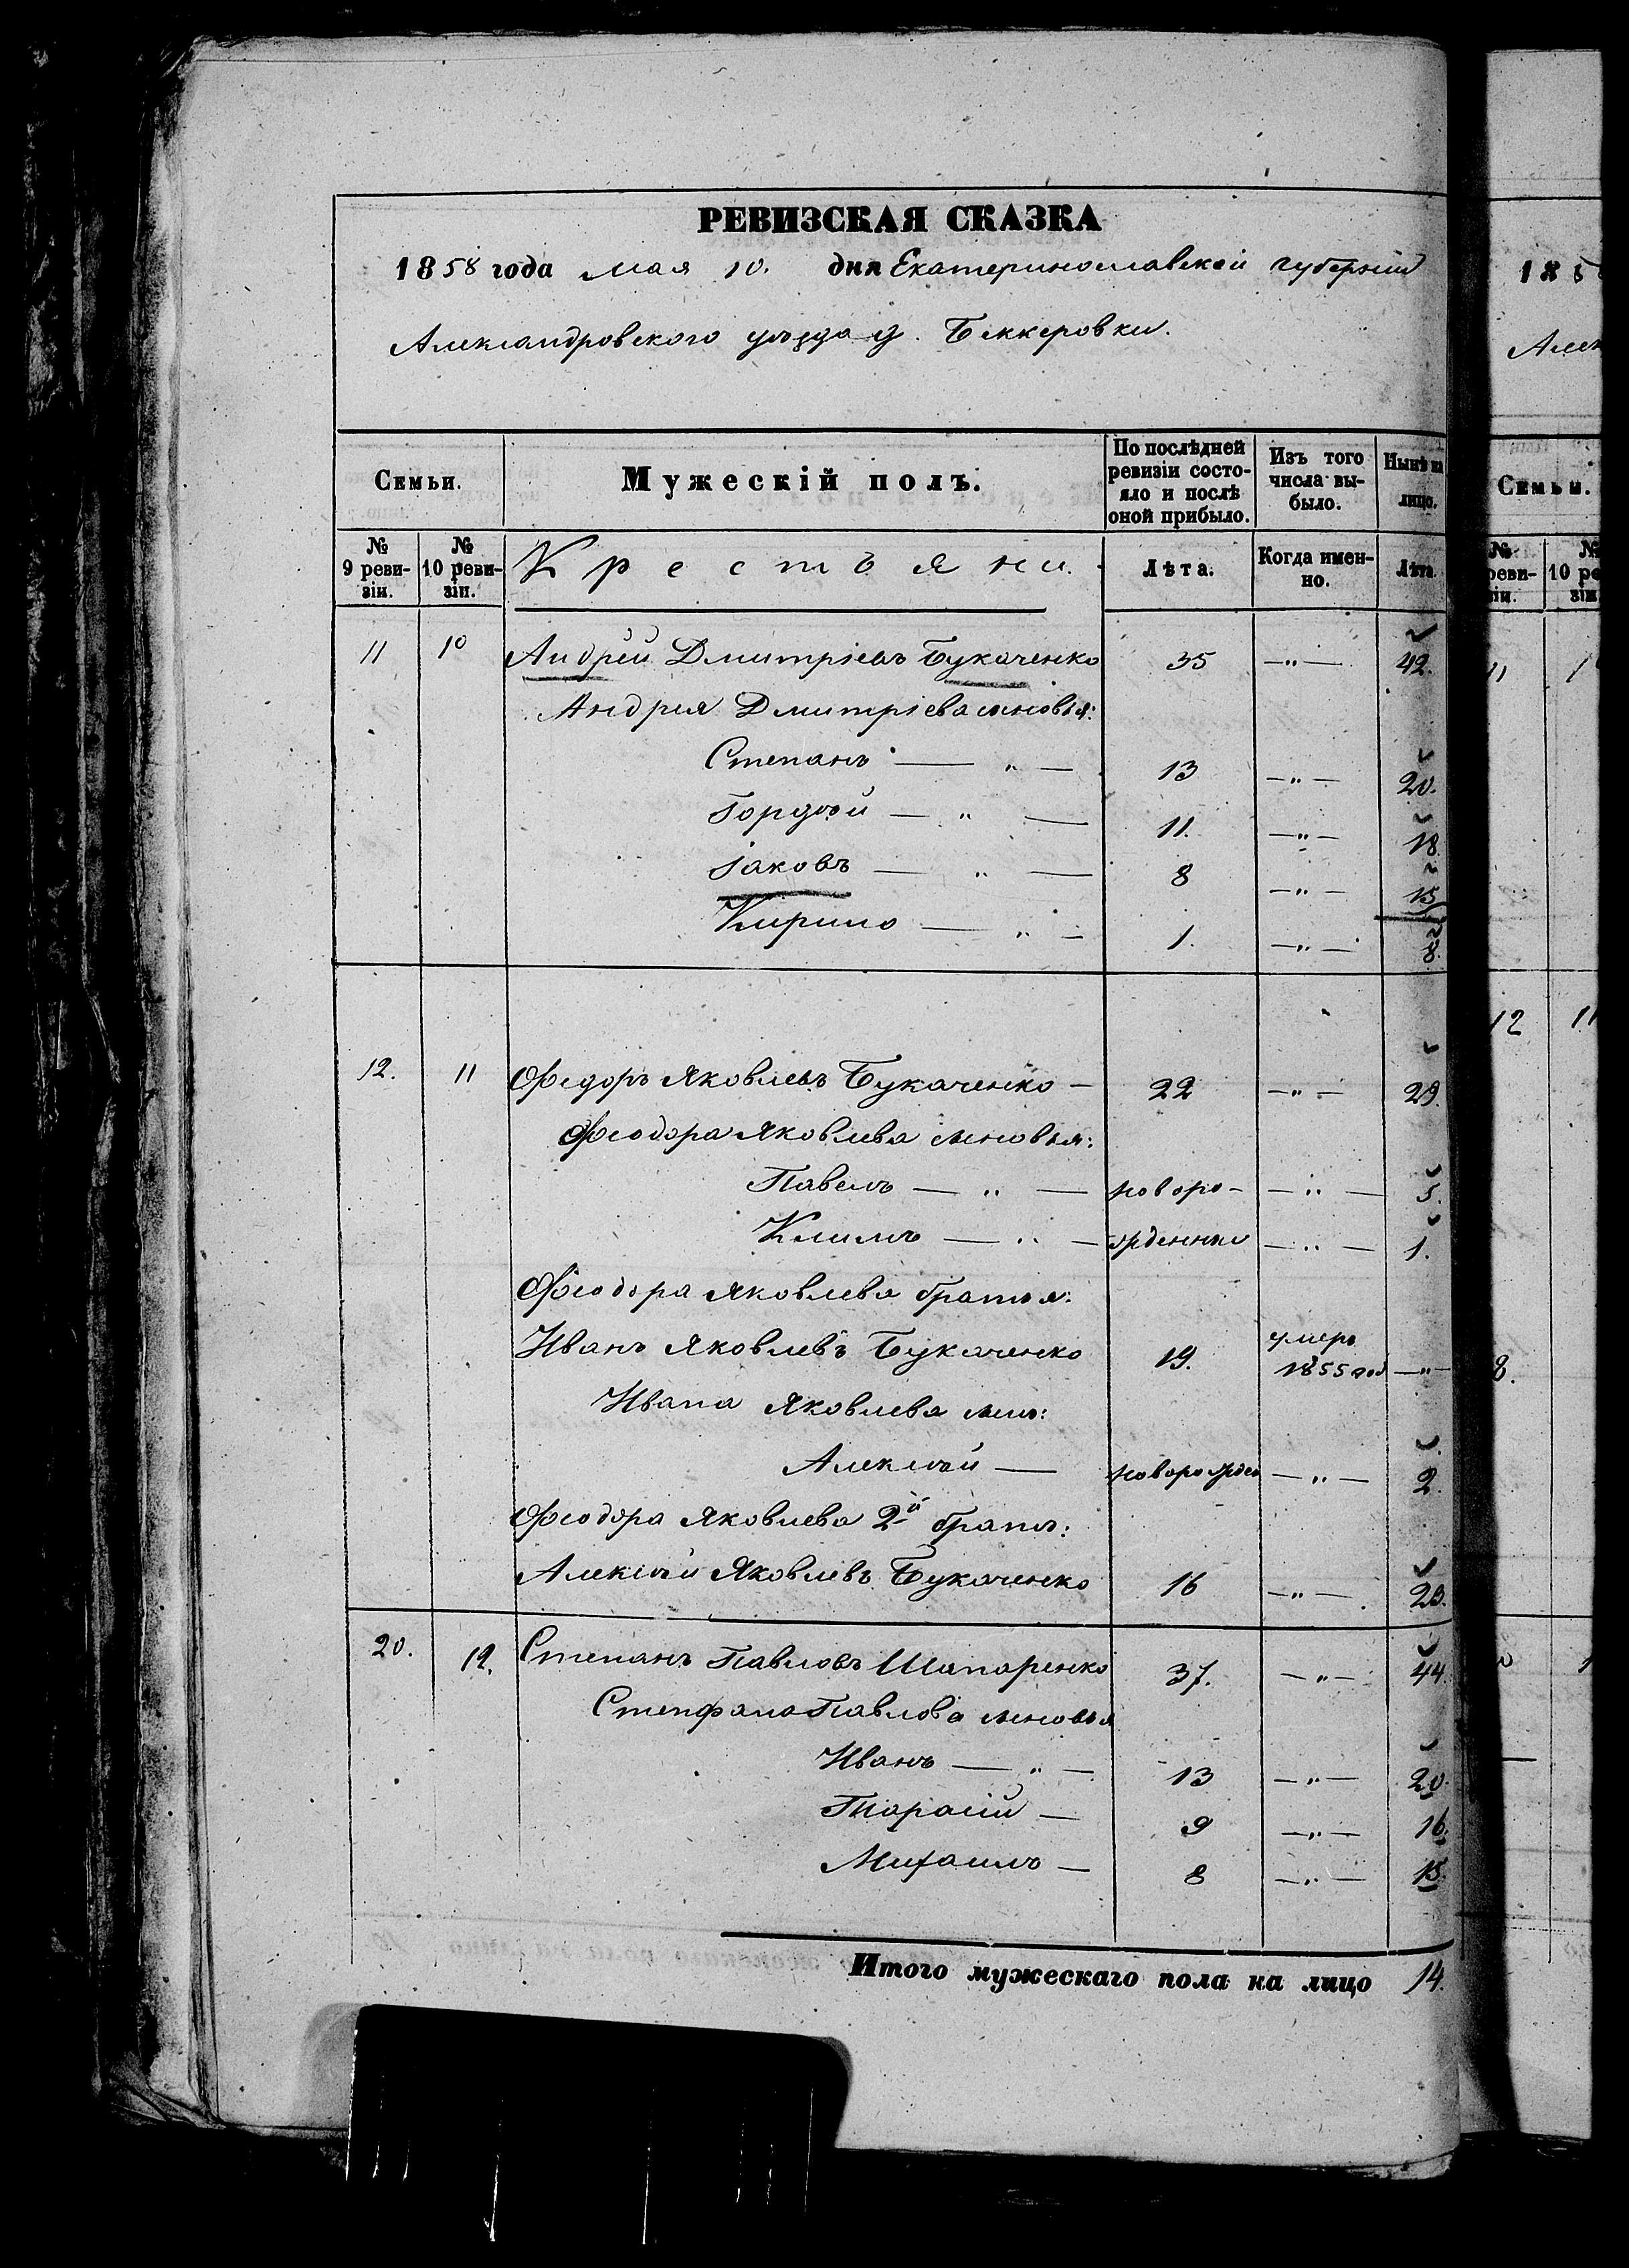 РЕВИЗСКАЯ СКАЗКА
1858 года мая 10. дня Екатеринославской губерніи
Александровского уѣзда д. Беккеровки.
Семьи. Мужескій полъ. По послѣдней ревизіи состояло и послѣ оной прибыло. Изъ того числа выбыло. Нынѣ на лицо.
№ 9 ревизіи. № 10 ревизіи. Крестьяни. Лѣта. Когда именно. Лѣта.
11 10 Андрей Дмитріевъ Букаченко 35 —"— 42.
Андрея Дмитріева сыновья:
Степанъ — " — 13 —"— 20.
Гордѣй — " — 11. —"— 18.
Іаковъ — " — 8 —"— 15
Кирило — " — 1. —"— 8.
12. 11 Федоръ Яковлевъ Букаченко — 22 —"— 29.
Феодора Яковлева сыновья:
Павелъ — " — новоро- —"— 5.
Климъ — " — жденные —"— 1.
Феодора Яковлева братья:
Иванъ Яковлевъ Букаченко 19. умеръ 1855 год —"—
Ивана Яковлева сынъ:
Алексѣй — новорожден —"— 2.
Феодора Яковлева 2й братъ:
Алексѣй Яковлевъ Букаченко 16 —"— 23.
20. 12. Степанъ Павловъ Шапаренко 37. —"— 44.
Стефана Павлова сыновья
Иванъ — " — 13 —"— 20.
Тарасій — 9 —"— 16.
Михаилъ — 8 —"— 15.
Итого мужескаго пола на лицо 14.
185
Алек
Семьи.
11 1
12 11
8.